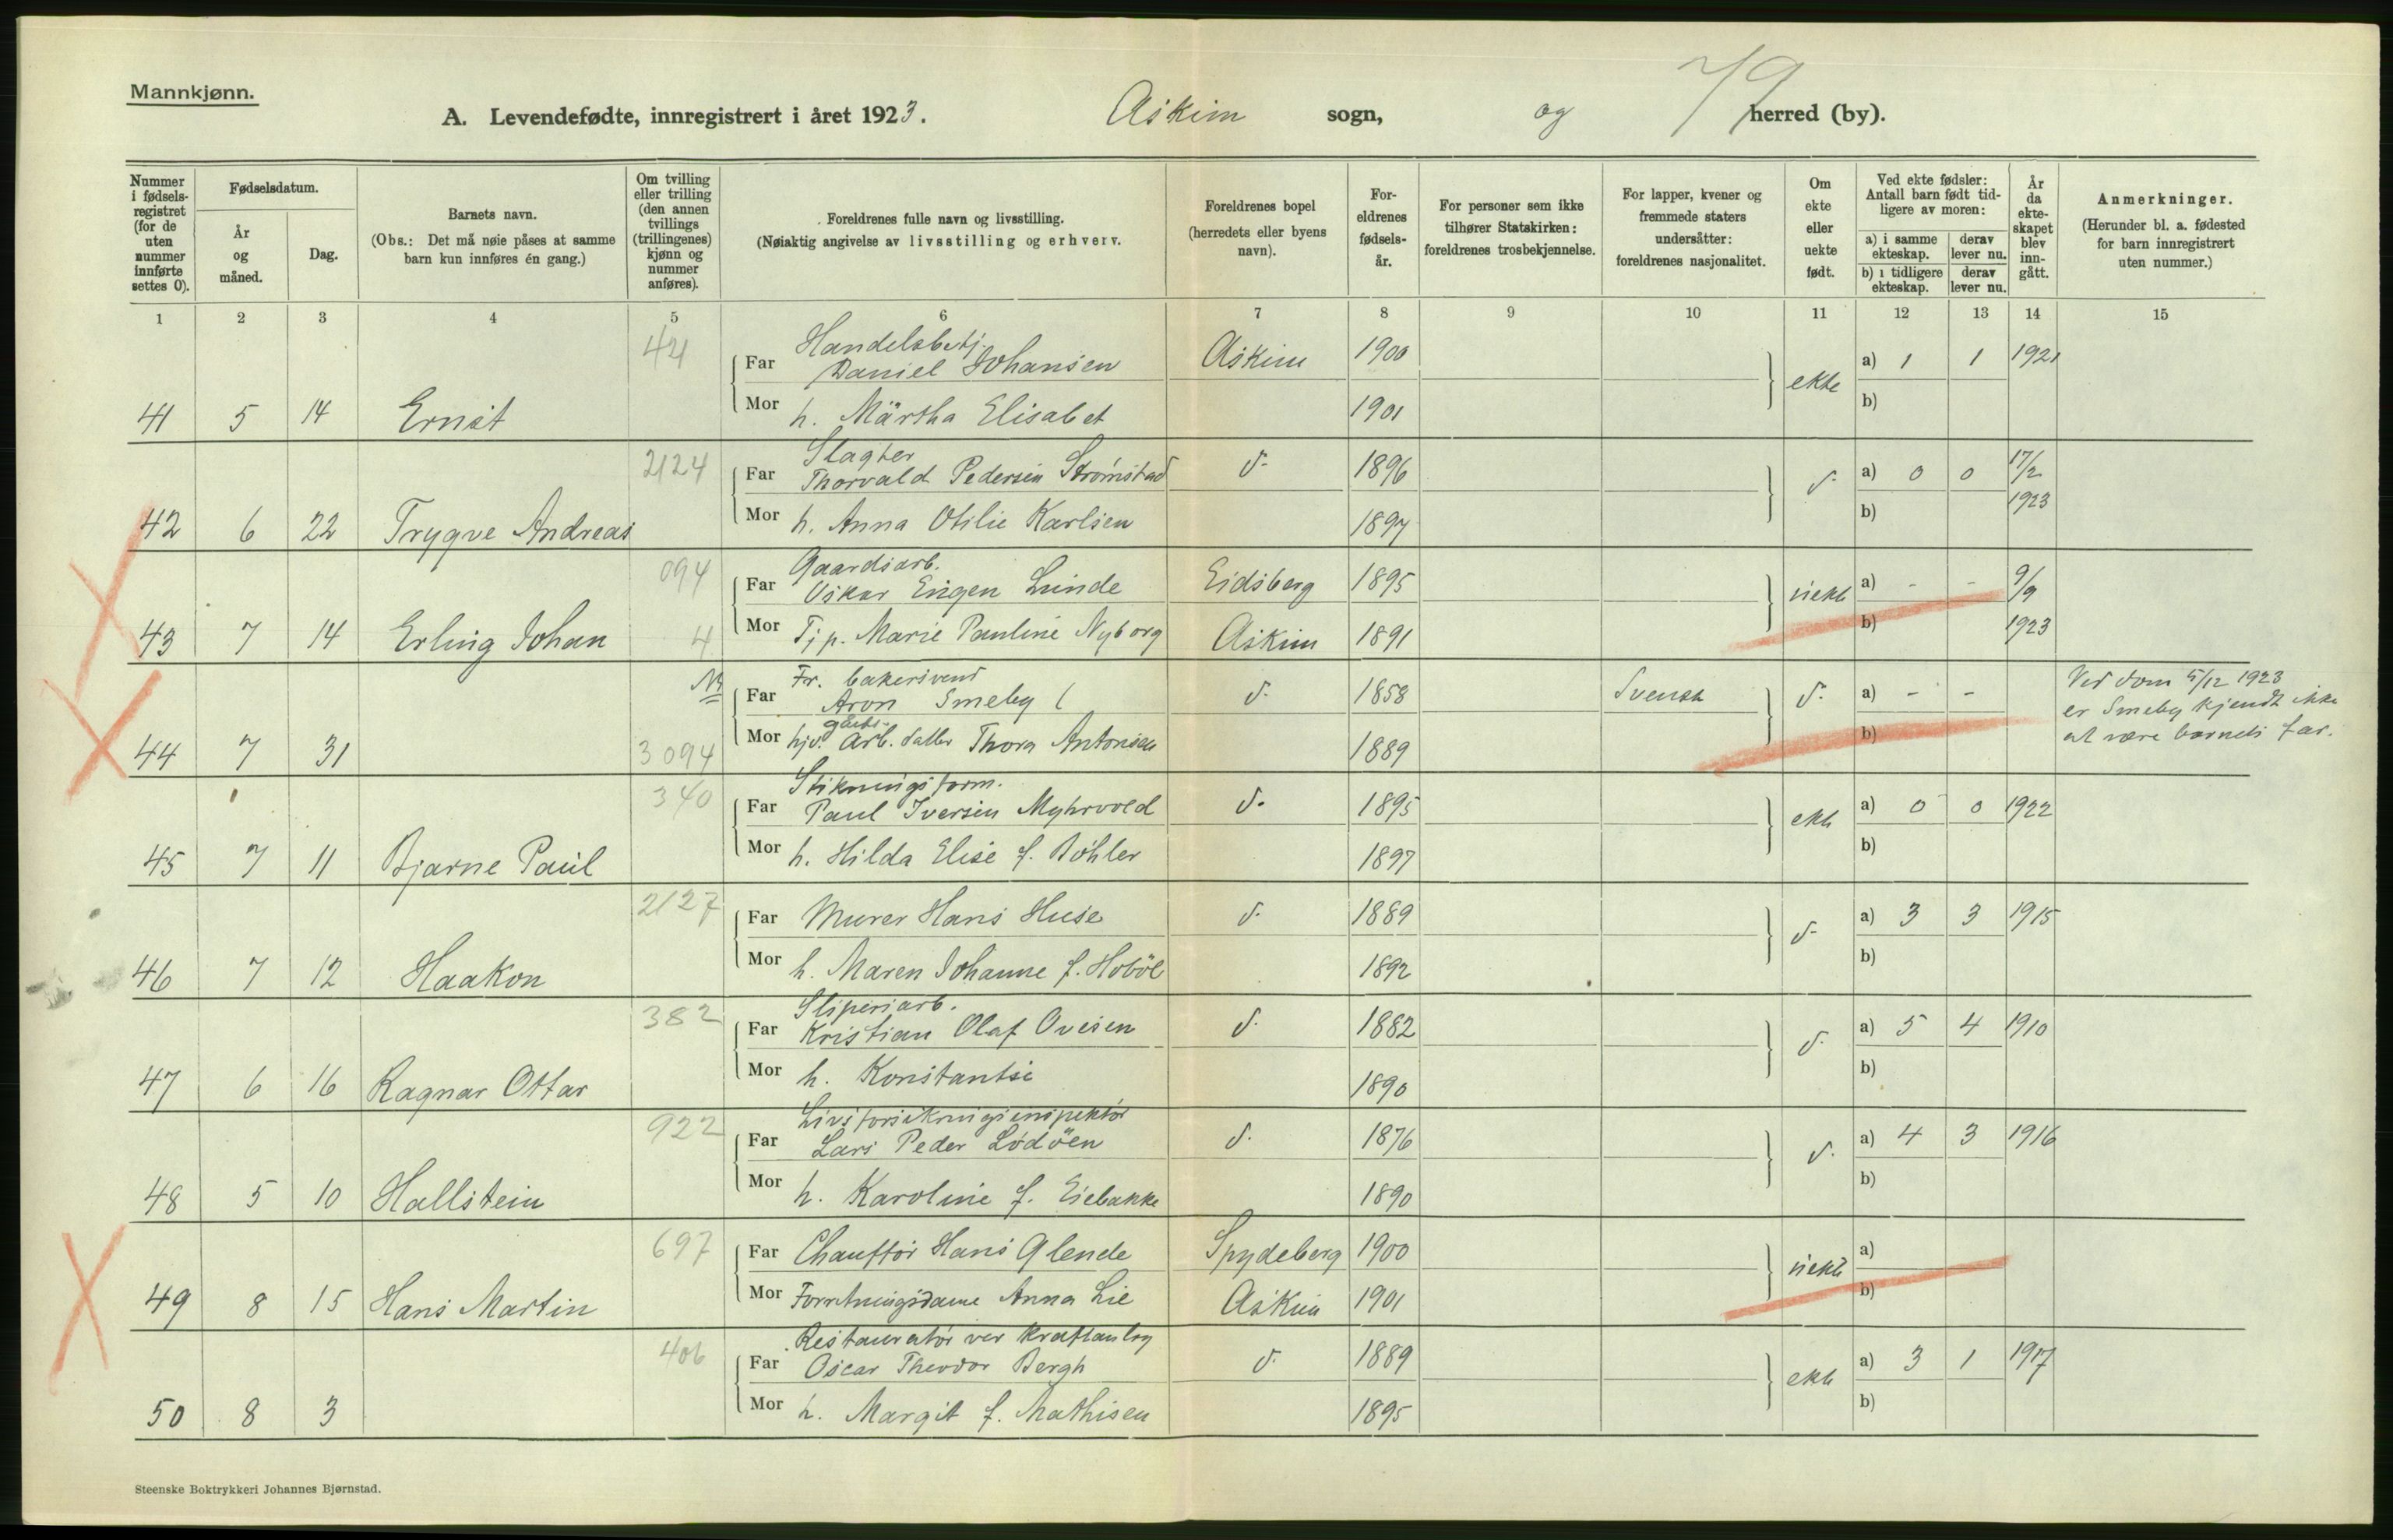 Mannkjønn.
A. Levendefødte, innregistrert i året 1923.
Askim sogn, og herred (by).
79
Nummer i fødselsregistret (for de uten nummer innførte settes 0).
Fødselsdatum.
År og måned.
Dag.
Barnets navn.
(Obs.: Det må nøie påses at samme barn kun innføres én gang.)
Om tvilling eller trilling (den annen tvillings (trillingenes) kjønn og nummer anføres).
Foreldrenes fulle navn og livsstilling.
(Nøiaktig angivelse av livsstilling og erhverv.
Foreldrenes bopel (herredets eller byens navn).
Foreldrenes fødselsår.
For personer som ikke tilhører Statskirken: foreldrenes trosbekjennelse.
For lapper, kvener og fremmede staters undersåtter: foreldrenes nasjonalitet.
Om ekte eller uekte født.
Ved ekte fødsler: Antall barn født tidligere av moren:
a) i samme ekteskap. derav lever nu.
b) i tidligere ekteskap. derav lever nu.
År da ekteskapet blev inngått.
Anmerkninger.
(Herunder bl. a. fødested for barn innregistrert uten nummer.)
1 2 3 4 5 6 7 8 9 10 11 12 13 14 15
41 5 14 Ernst 441
Far Handelsbetj. Daniel Johansen Askim 1900 ekte a) 1 1 1921
Mor h. Märtha Elisabet 1901 b)
42 6 22 Trygve Andreas 2124
Far Slagter Thorvald Pedersen Strømstad d. 1896 d. a) 0 0 17/2 1923
Mor h. Anna Otilie Karlsen 1897 b)
43 7 14 Erling Johan 094 4
Far Gaardsarb. Oskar Eugen Lunde Eidsberg 1895 uekte a) - - 9/9 1923
Mor Tjp. Marie Pauline Nyborg Askim 1891 b)
44 7 31 3 094
Far Fr. bakersvend Aron Smeby ( d. 1858 Svensk d. a) - -
Mor hjv. gårds- arb. datter Thora Antonsen 1889 b)
Ved dom 5/12 1923 er Smeby kjendt ikke at være barnets far.
45 7 11 Bjarne Paul 340
Far Stikningsform. Paul Iversen Myhrvold d. 1895 ekte a) 0 0 1922
Mor h. Hilda Elise f. Bøhler 1897 b)
46 7 12 Haakon 2127
Far Murer Hans Huse d. 1889 d. a) 3 3 1915
Mor h. Maren Johanne f. Hobøl 1892 b)
47 6 16 Ragnar Ottar 382
Far Sliperiarb. Kristian Olaf Ovesen d. 1882 d. a) 5 4 1910
Mor h. Konstantse 1890 b)
48 5 10 Hallstein 922
Far Livsforsikringsinspektør Lars Peder Lødøen d. 1876 d. a) 4 3 1916
Mor h. Karoline f. Eiebakke 1890 b)
49 8 15 Hans Martin 697
Far Chauffør Hans Glende Spydeberg 1900 uekte a)
Mor Forretningsdame Anna Lie Askim 1901 b)
50 8 3 406
Far Restauratør ver kraftanleg Oscar Theodor Bergh d. 1889 ekte a) 3 1 1917
Mor h. Margit f. Mathisen 1895 b)
Steenske Boktrykkeri Johannes Bjørnstad.